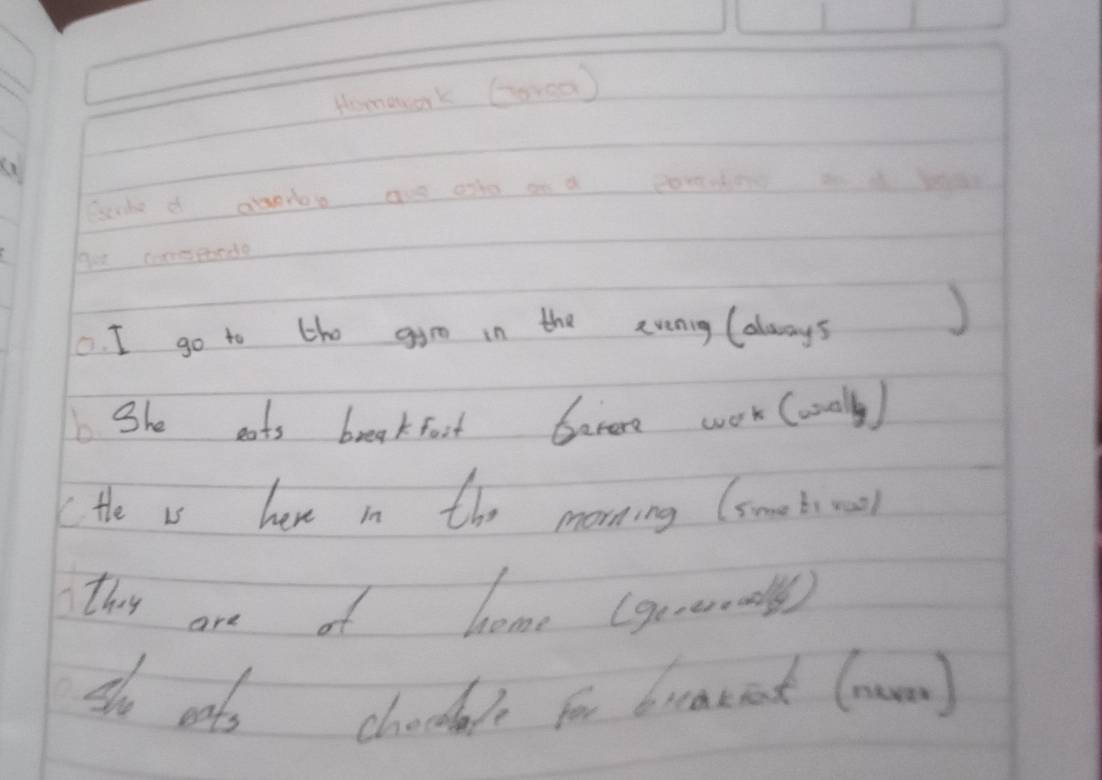 Homework (Tarea)
Escribe el adverbio que esta en el parentesis en el lugar
que corresponde
a. I go to the gym in the evenig (always )
b. She eats breakfast before work (usually)
c. He is here in the morning (sometimes)
d They are at home (generally)
She eats chocolate for breakfast (never)